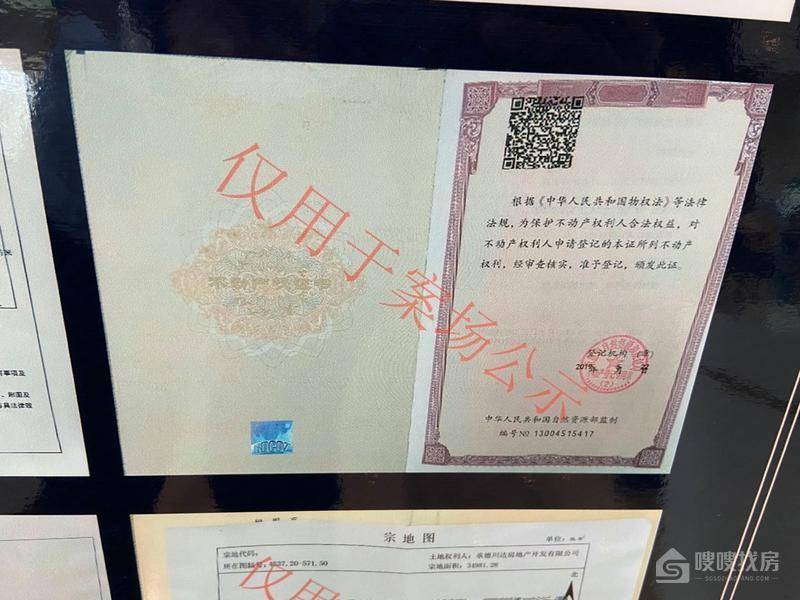 根据《中华人民共和国物权法》等法律
法规,为保护不动产权利人合法权益,对
不动产权利人申请登记的本证所列不动产
权利,经审查核实,准予登记,颁发此证。
不动产权证书
仅用于案场公示
登记机构(章)
中华人民共和国自然资源部监制
编号№ 13004515417
事项及
附图及
具法律效
宗地图
单位:
宗地代码:
土地权利人:承德川达房地产开发有限公司
所在图幅号:4537.20-571.50
宗地面积:34981.28
北
仅用
嗖嗖找房
SOSOZHAOFANG.COM